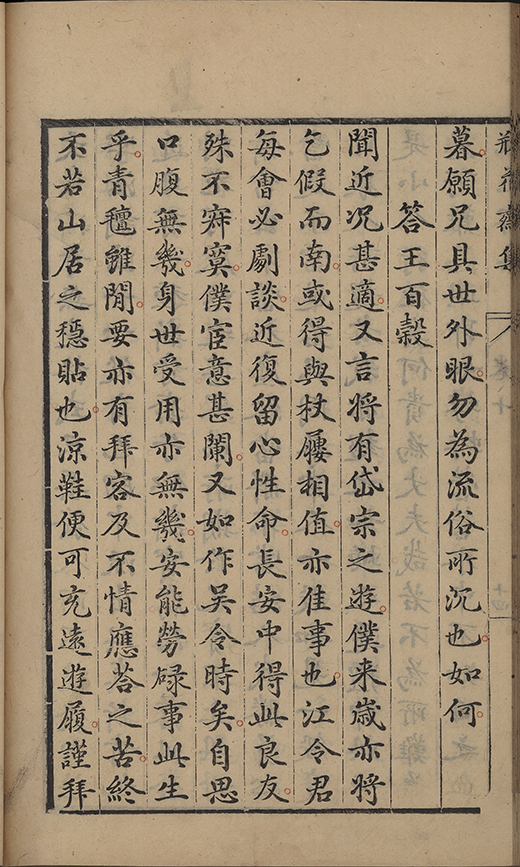 瓶花齋集
卷十
暮願兄具世外眼勿為流俗所沉也如何
答王百穀
聞近況甚適又言將有岱宗之遊僕来歲亦將
乞假而南或得與杖屨相值亦佳事也江令君
每會必劇談近復留心性命長安中得此良友
殊不寂寞僕宦意甚闌又如作吴令時矣自思
口腹無幾身世受用亦無幾安能勞碌事此生
乎青氊雖閒要亦有拜客及不情應荅之苦終
不若山居之穩貼也凉鞋便可充遠遊履謹拜